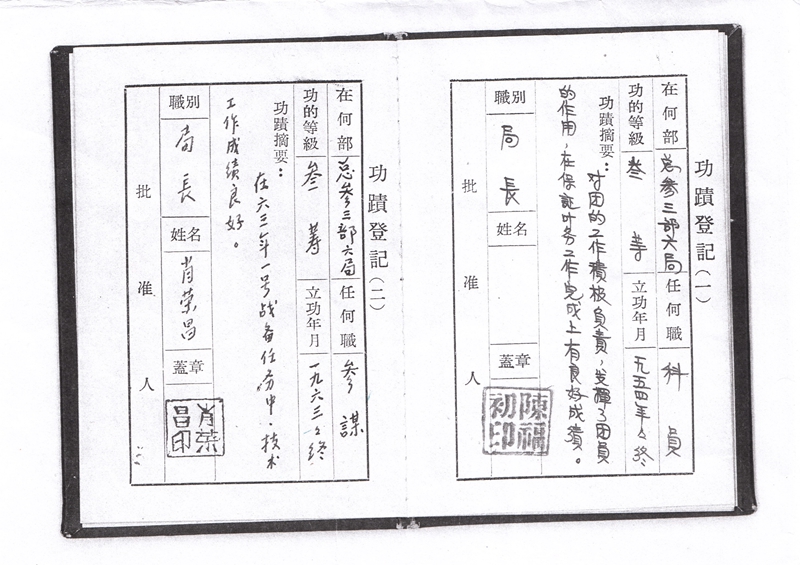 功蹟登記(一)
在何部 总参三部六局 任何職 科員
功的等級 叁等 立功年月 一九五四年年終
功蹟摘要:
对团的工作積极負責,发揮了团員
的作用,在保証业务工作完成上有良好成績。
職別 局長 姓名 蓋章 陳福初印
批准人
功蹟登記(二)
在何部 总参三部六局 任何職 参謀
功的等級 叁等 立功年月 一九六三年終
功蹟摘要:
在六三年一号战备任务中,技术
工作成績良好。
職別 局長 姓名 肖荣昌 蓋章 肖荣昌印
批准人